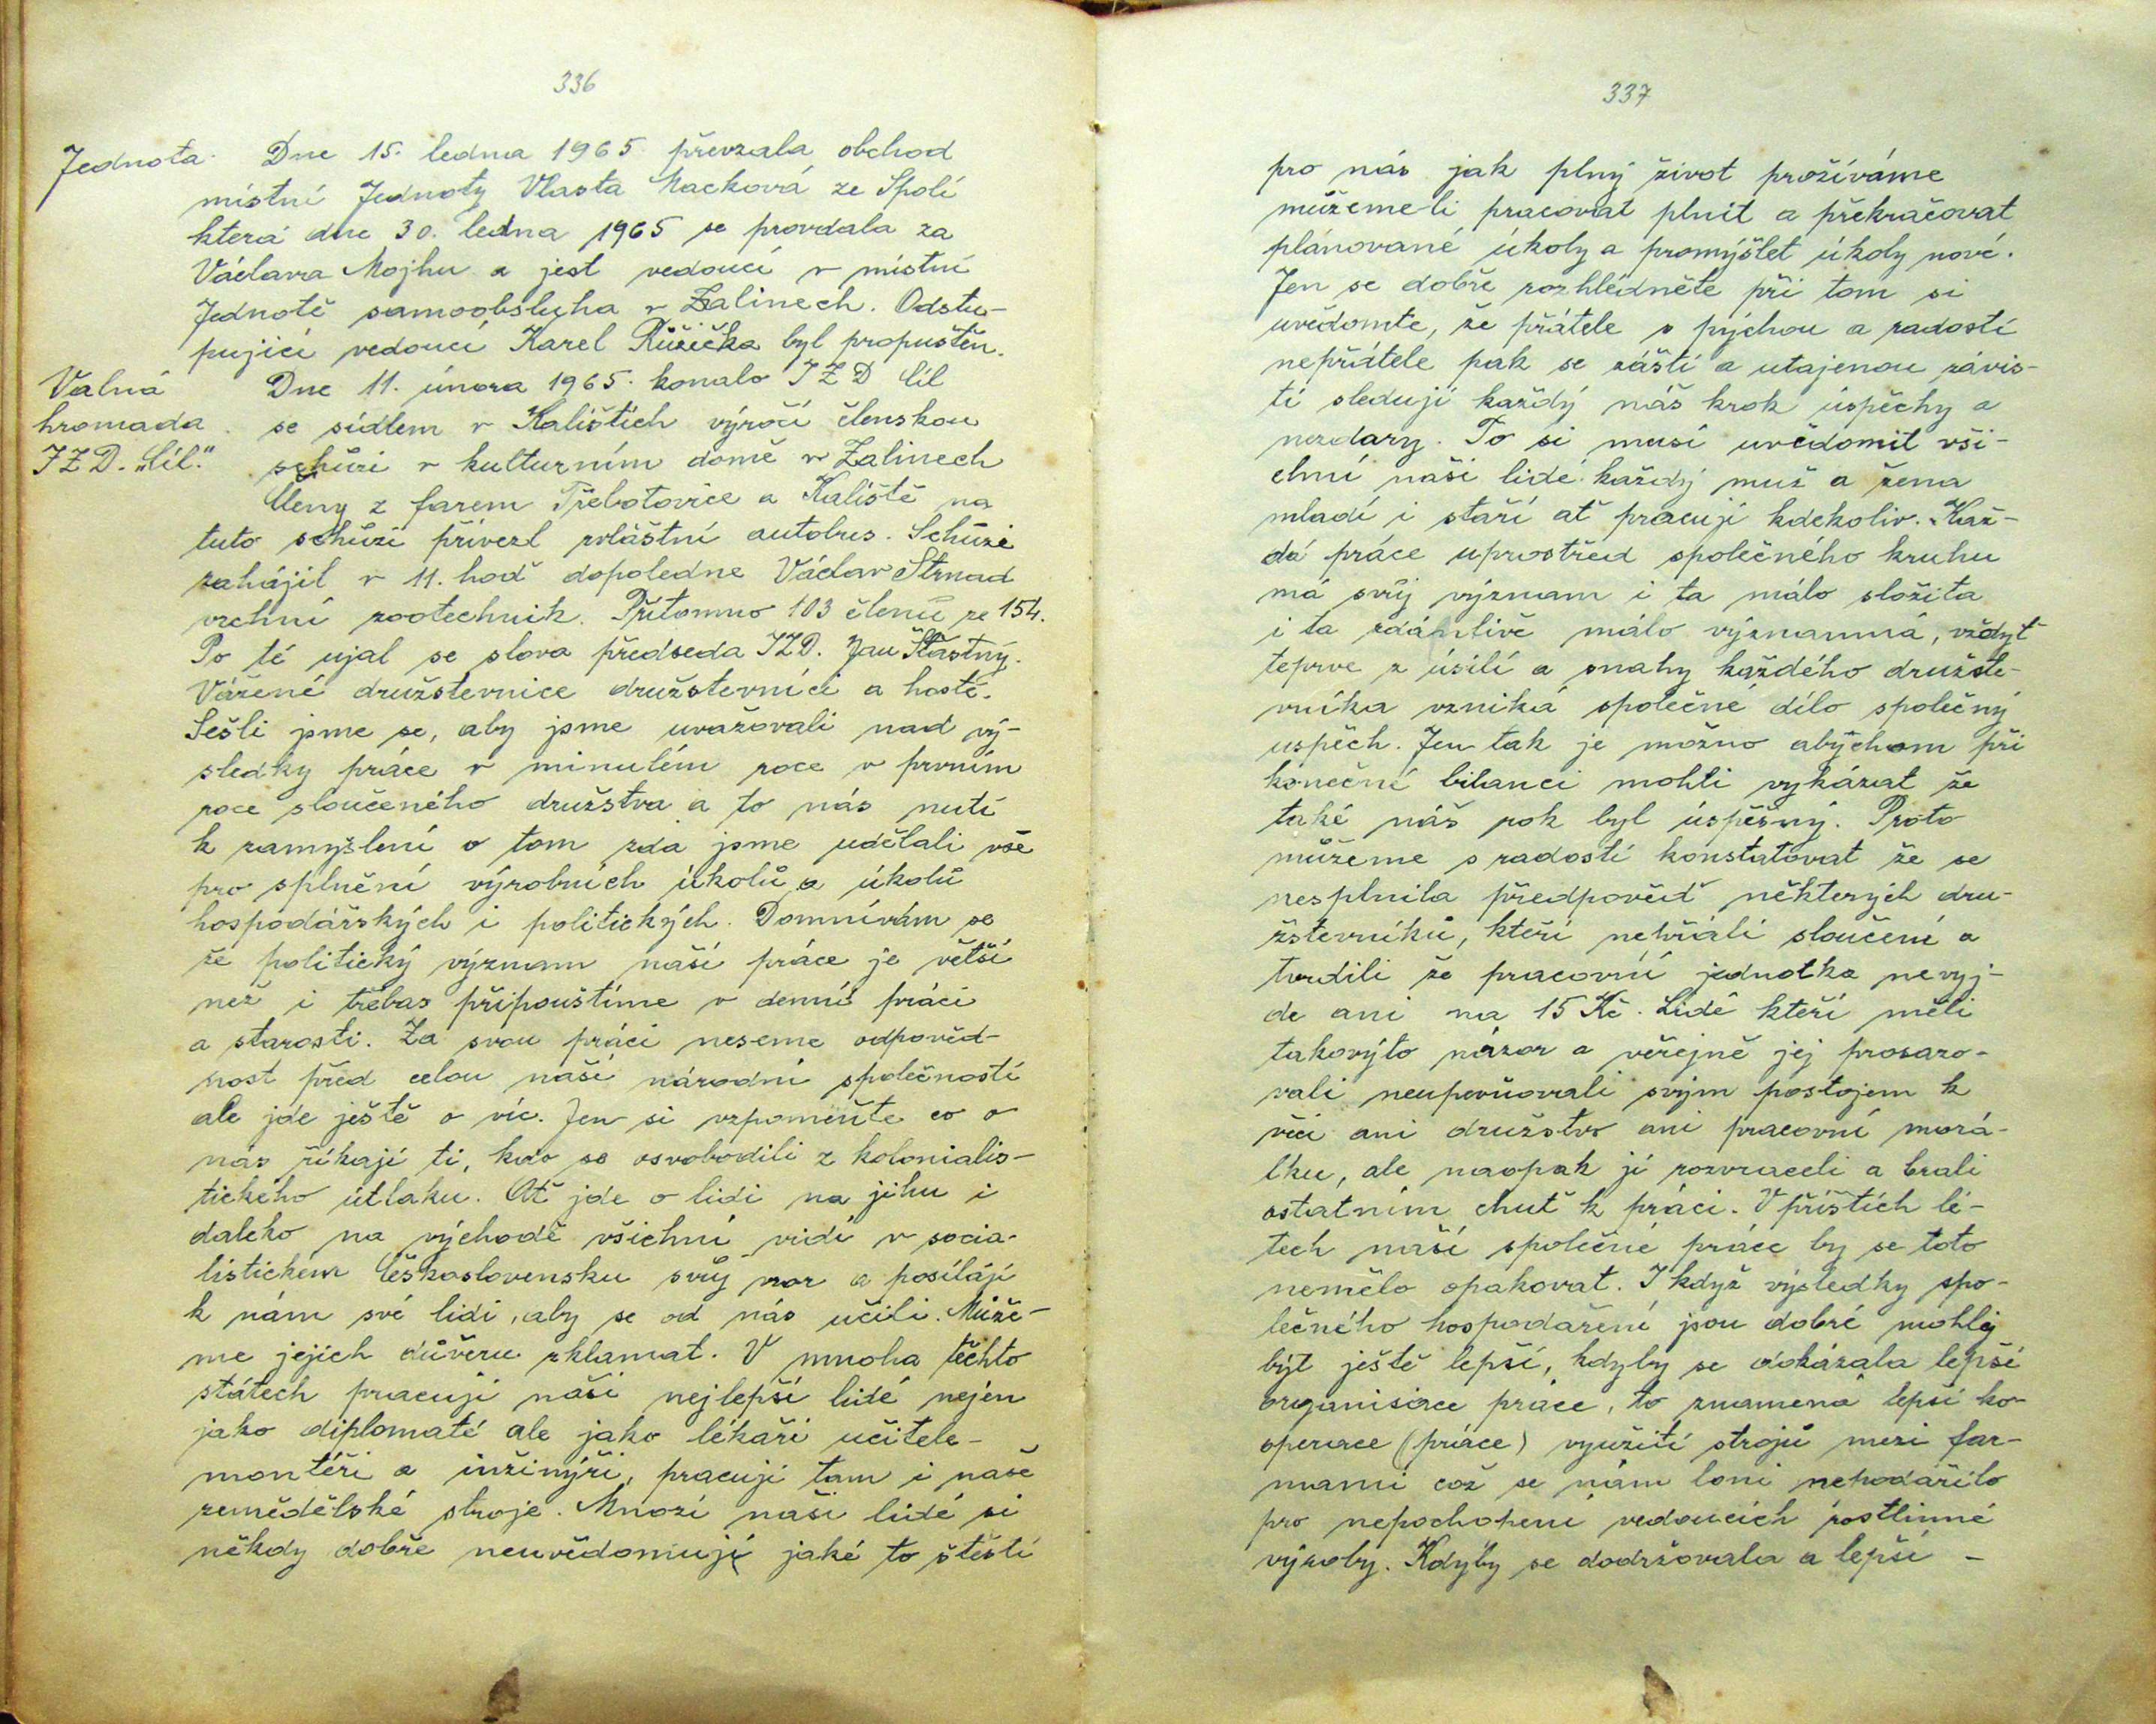 336
Jednota. Dne 15. ledna 1965 převzala obchod
místní Jednoty Vlasta Macková ze Spolí
která dne 30. ledna 1965 se provdala za
Václava Mojhu a jest vedoucí v místní
Jednotě samoobsluha v Zalinech. Odstu-
pující vedoucí Karel Růžička byl propuštěn.
Valná Dne 11. února 1965. konalo JZD Cíl
hromada se sídlem v Kalištích výročí členskou
JZD. „Cíl." schůzi v kulturním domě v Zalinech
Členy z farem Třebotovice a Kaliště na
tuto schůzi přivezl zvláštní autobus. Schůzi
zahájil v 11. hod dopoledne Václav Strnad
vrchní zootechnik. Přítomno 103 členů ze 154.
Po té ujal se slova předseda JZD. Jan Šťastný.
Vážené družstevnice družstevníci a hosté.
Sešli jsme se, aby jsme uvažovali nad vý-
sledky práce v minulém roce v prvním
roce sloučeného družstva a to nás nutí
k zamyšlení o tom zda jsme udělali vše
pro splnění výrobních úkolů a úkolů
hospodářských i politických. Domnívám se
že politický význam naší práce je větší
než i třebas připouštíme v denní práci
a starosti. Za svou práci neseme odpověd-
nost před celou naší národní společností
ale jde ještě o víc. Jen si vzpomeňte co o
nás říkají ti, kdo se osvobodili z kolonialis-
tického útlaku. Ať jde o lidi na jihu i
daleko na východě všichni vidí v socia-
listickém Československu svůj vzor a posílají
k nám své lidi, aby se od nás učili. Může-
me jejich důvěru zklamat. V mnoha těchto
státech pracují naší nejlepší lidé nejen
jako diplomaté ale jako lékaři učitele-
montéři a inžinýři, pracují tam i naše
zemědělské stroje. Mnozí naši lidé si
někdy dobře neuvědomují jaké to štěstí
337
pro nás jak plný život prožíváme
můžeme-li pracovat plnit a překračovat
plánované úkoly a promýšlet úkoly nové.
Jen se dobře rozhlédněte při tom si
uvědomte, že přátele s pýchou a radostí
nepřátele pak se záští a utajenou závis-
tí sledují každý náš krok úspěchy a
nezdary. To si musí uvědomit vši-
chni naši lidé každý muž a žena
mladí i staří ať pracují kdekoliv. Kaž-
dá práce uprostřed společného kruhu
má svůj význam i ta málo složita
i ta zdánlivě málo významná, vždyť
teprve z úsilí a snahy každého družste-
vníka vzniká společné dílo společný
uspěch. Jen tak je možno abychom při
koneční bilanci mohli vykázat že
také náš rok byl úspěšný. Proto
můžeme s radostí konstatovat že se
nesplnila předpověď některých dru-
žstevníků, kteří nepřáli sloučení a
tvrdili že pracovní jednotka nevyj-
de ani na 15 Kč. Lidé kteří měli
takovýto názor a veřejně jej prosazo-
vali neupevňovali svým postojem k
věci ani družstvo ani pracovní morá-
lku, ale naopak jí rozvraceli a brali
ostatním chuť k práci. V příštích lé-
tech naší společné práce by se toto
nemělo opakovat. I když výsledky spo-
lečného hospodaření jsou dobré mohly
být ještě lepší, kdyby se dokázala lepší
organisace práce, to znamená lepší ko-
operace (práce) využití strojů mezi far-
mami což se nám loni nepodařilo
pro nepochopení vedoucích rostlinné
výroby. Kdyby se dodržovala a lepší -